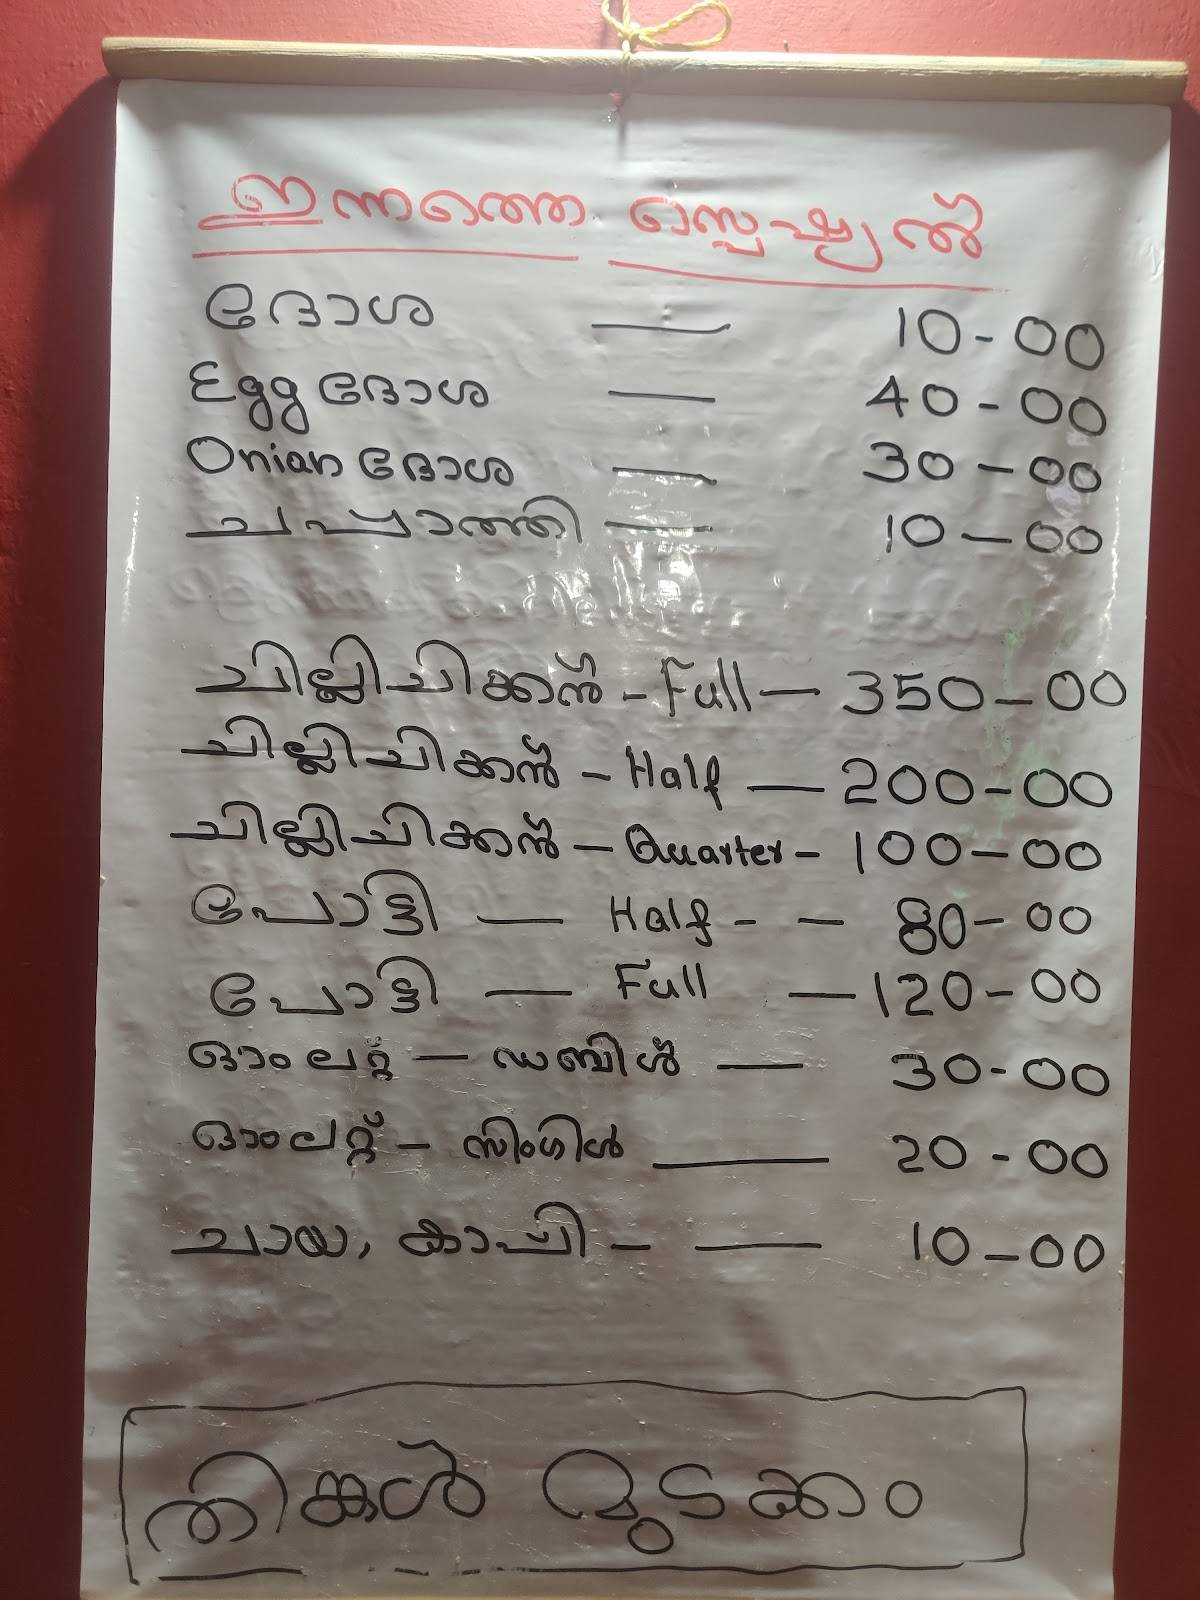 ഇന്നത്തെ സ്പെഷ്യൽ
ദോശ — 10-00
Egg ദോശ — 40-00
Onian ദോശ — 30-00
ചപ്പാത്തി — 10-00
ചില്ലിചിക്കൻ - Full — 350-00
ചില്ലിചിക്കൻ - Half — 200-00
ചില്ലിചിക്കൻ - Quarter - 100-00
പോട്ടി — Half - — 80-00
പോട്ടി — Full — 120-00
ഓംലറ്റ് — ഡബിൾ — 30-00
ഓംലറ്റ് - സിംഗിൾ — 20-00
ചായ, കാപ്പി - — 10-00
തിങ്കൾ മുടക്കം